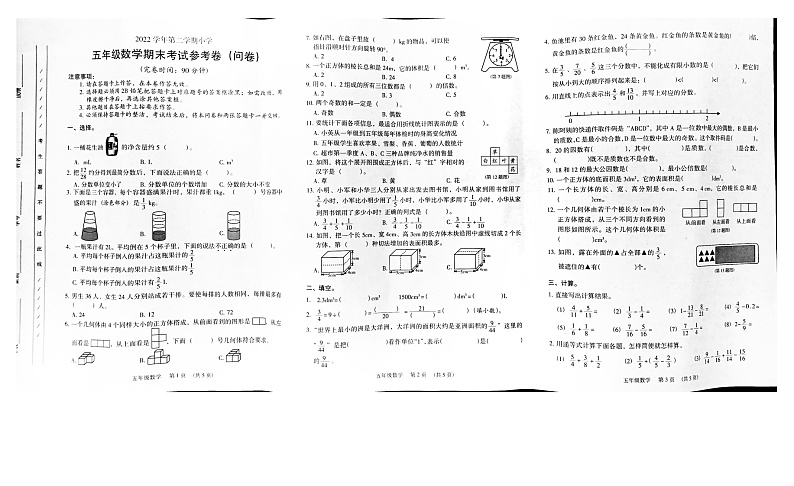 2022学年第二学期小学
五年级数学期末考试参考卷（问卷）
（完卷时间：90分钟）
注意事项：
1. 请在答题卡上作答，在本卷作答无效。
3. 其他题目在答题卡上按要求作答。
一、选择。
1. 一桶花生油的净含量约5（ ）。
A. mL B. L C. m³
2. 把12/28约分得到最简分数后，下面说法正确的是（ ）。
A. 分数单位变小了 B. 分数单位的个数增加 C. 分数的大小不变
3. 下面是三个容器，每个容器盛满果汁时，果汁都重1kg，（ ）号容器中
盛的果汁（涂色部分）是1/3kg。
A. B. C.
4. 一瓶果汁有2L，平均倒在5个杯子里，下面的说法不正确的是（ ）。
A. 平均每个杯子倒人的果汁占这瓶果汁的2/5
B. 平均每个杯子倒人的果汁占这瓶果汁的1/5
C. 平均每个杯子倒人的果汁有2/5L
5. 男生36人，女生24人分别站成若干排。要使每排的人数相同，每排最多有
（ ）人。
A. 24 B. 12 C. 72
6. 一个几何体由4个同样大小的正方体搭成，从前面看到的图形是，从左
面看是，从上面看是，下面（ ）号几何体符合要求。
A. B. C.
五年级数学 第1页（共5页）
7. 如右图，在盘子里放（ ）kg的物品，可以使
指针沿顺时针方向旋转90°。
A. 2 B. 4 C. 6
（第7题图）
8. 一个正方体的棱长总和是24m，它的体积是（ ）m³。
A. 2 B. 24 C. 8
9. 用0、1、2组成的所有三位数都是（ ）的倍数。
A. 2 B. 3 C. 5
10. 两个奇数的和一定是（ ）。
A. 奇数 B. 偶数 C. 合数
11. 要统计下面各项信息，最适合用折线统计图表示的是（ ）。
A. 小英从一年级到五年级每年体检时的身高变化情况
B. 五年级学生喜欢苹果、雪梨、香蕉、葡萄的人数统计
C. 超市第一季度A、B、C三种品牌纯净水的销售量
12. 如图，将这个展开图围成正方体后，与“红”字相对的
汉字是（ ）。
A. 草 B. 黄 C. 花
草
白 红 叶 黄
（第12题图）
13. 小明、小军和小华三人分别从家出发去图书馆，小明从家到图书馆用了
3/4小时，小军比小明少用了1/5小时，小华比小军多用了1/10小时，小华从家
到图书馆用了多少小时？正确的列式是（ ）。
A. 3/4+1/5+1/10 B. 3/4-1/5+1/10 C. 3/4-1/5-1/10
14. 如图，把一个长5cm、宽4cm、高3cm的长方体木块沿图中虚线切成2个长
方体，第（ ）种切法增加的表面积最多。
A. B. C.
二、填空。
1. 2.3dm³=（ ）cm³ 1500cm³=（ ）dm³=（ ）L
3. “世界上最小的洲是大洋洲，大洋洲的面积大约是亚洲面积的9/44”这里的
“9/44”是把（ ）看作单位“1”，表示（ ）是（ ）
的9/44。
五年级数学 第2页（共5页）
4. 鱼池里有30条红金鱼，24条黄金鱼。红金鱼的条数是黄金鱼的（ ）倍，
黄金鱼的条数是红金鱼的（ ）/（ ）。
（ ）＜（ ）＜（ ）
6. 用直线上的点表示出4/5和13/10，并写上对应的分数。
0 1 2
7. 陈阿姨的快递件取件码是“ABCD”，其中A是一位数中最大的偶数，B是最小
的质数，C是最小的合数，D是一位数中最大的奇数，这个取件码是（ ）。
8. 20的因数有（ ），其中（ ）是质数，（ ）是合数，
（ ）既不是质数也不是合数。
9. 18和12的最大公因数是（ ），最小公倍数是（ ）。
10. 一个正方体的底面积是3dm²，它的表面积是（ ）dm²。
11. 一个长方体的长、宽、高分别是6cm、5cm、4cm，它的棱长总和是
（ ）cm。
12. 一个几何体由若干个棱长为1cm的小
正方体搭成，从三个不同方向看到的
图形如图所示，这个几何体的体积是
（ ）cm³。
从前面看 从左面看 从上面看
（第12题图）
13. 如图，露在外面的▲占全部▲的3/5，
被遮住的▲有（ ）个。
（第13题图）
三、计算。
1. 直接写出计算结果。
2. 用递等式计算下面各题，怎样简便就怎样算。
五年级数学 第3页（共5页）